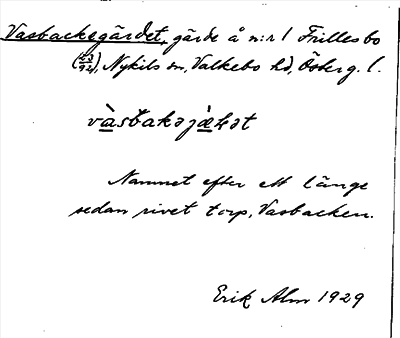 Vasbackegärdet, gärde å n:r 1 Frillesbo
Nykils sn, Valkebo hd, Österg. l.
Namnet efter ett länge
sedan rivet torp, Vasbacken.
Erik Alm 1929